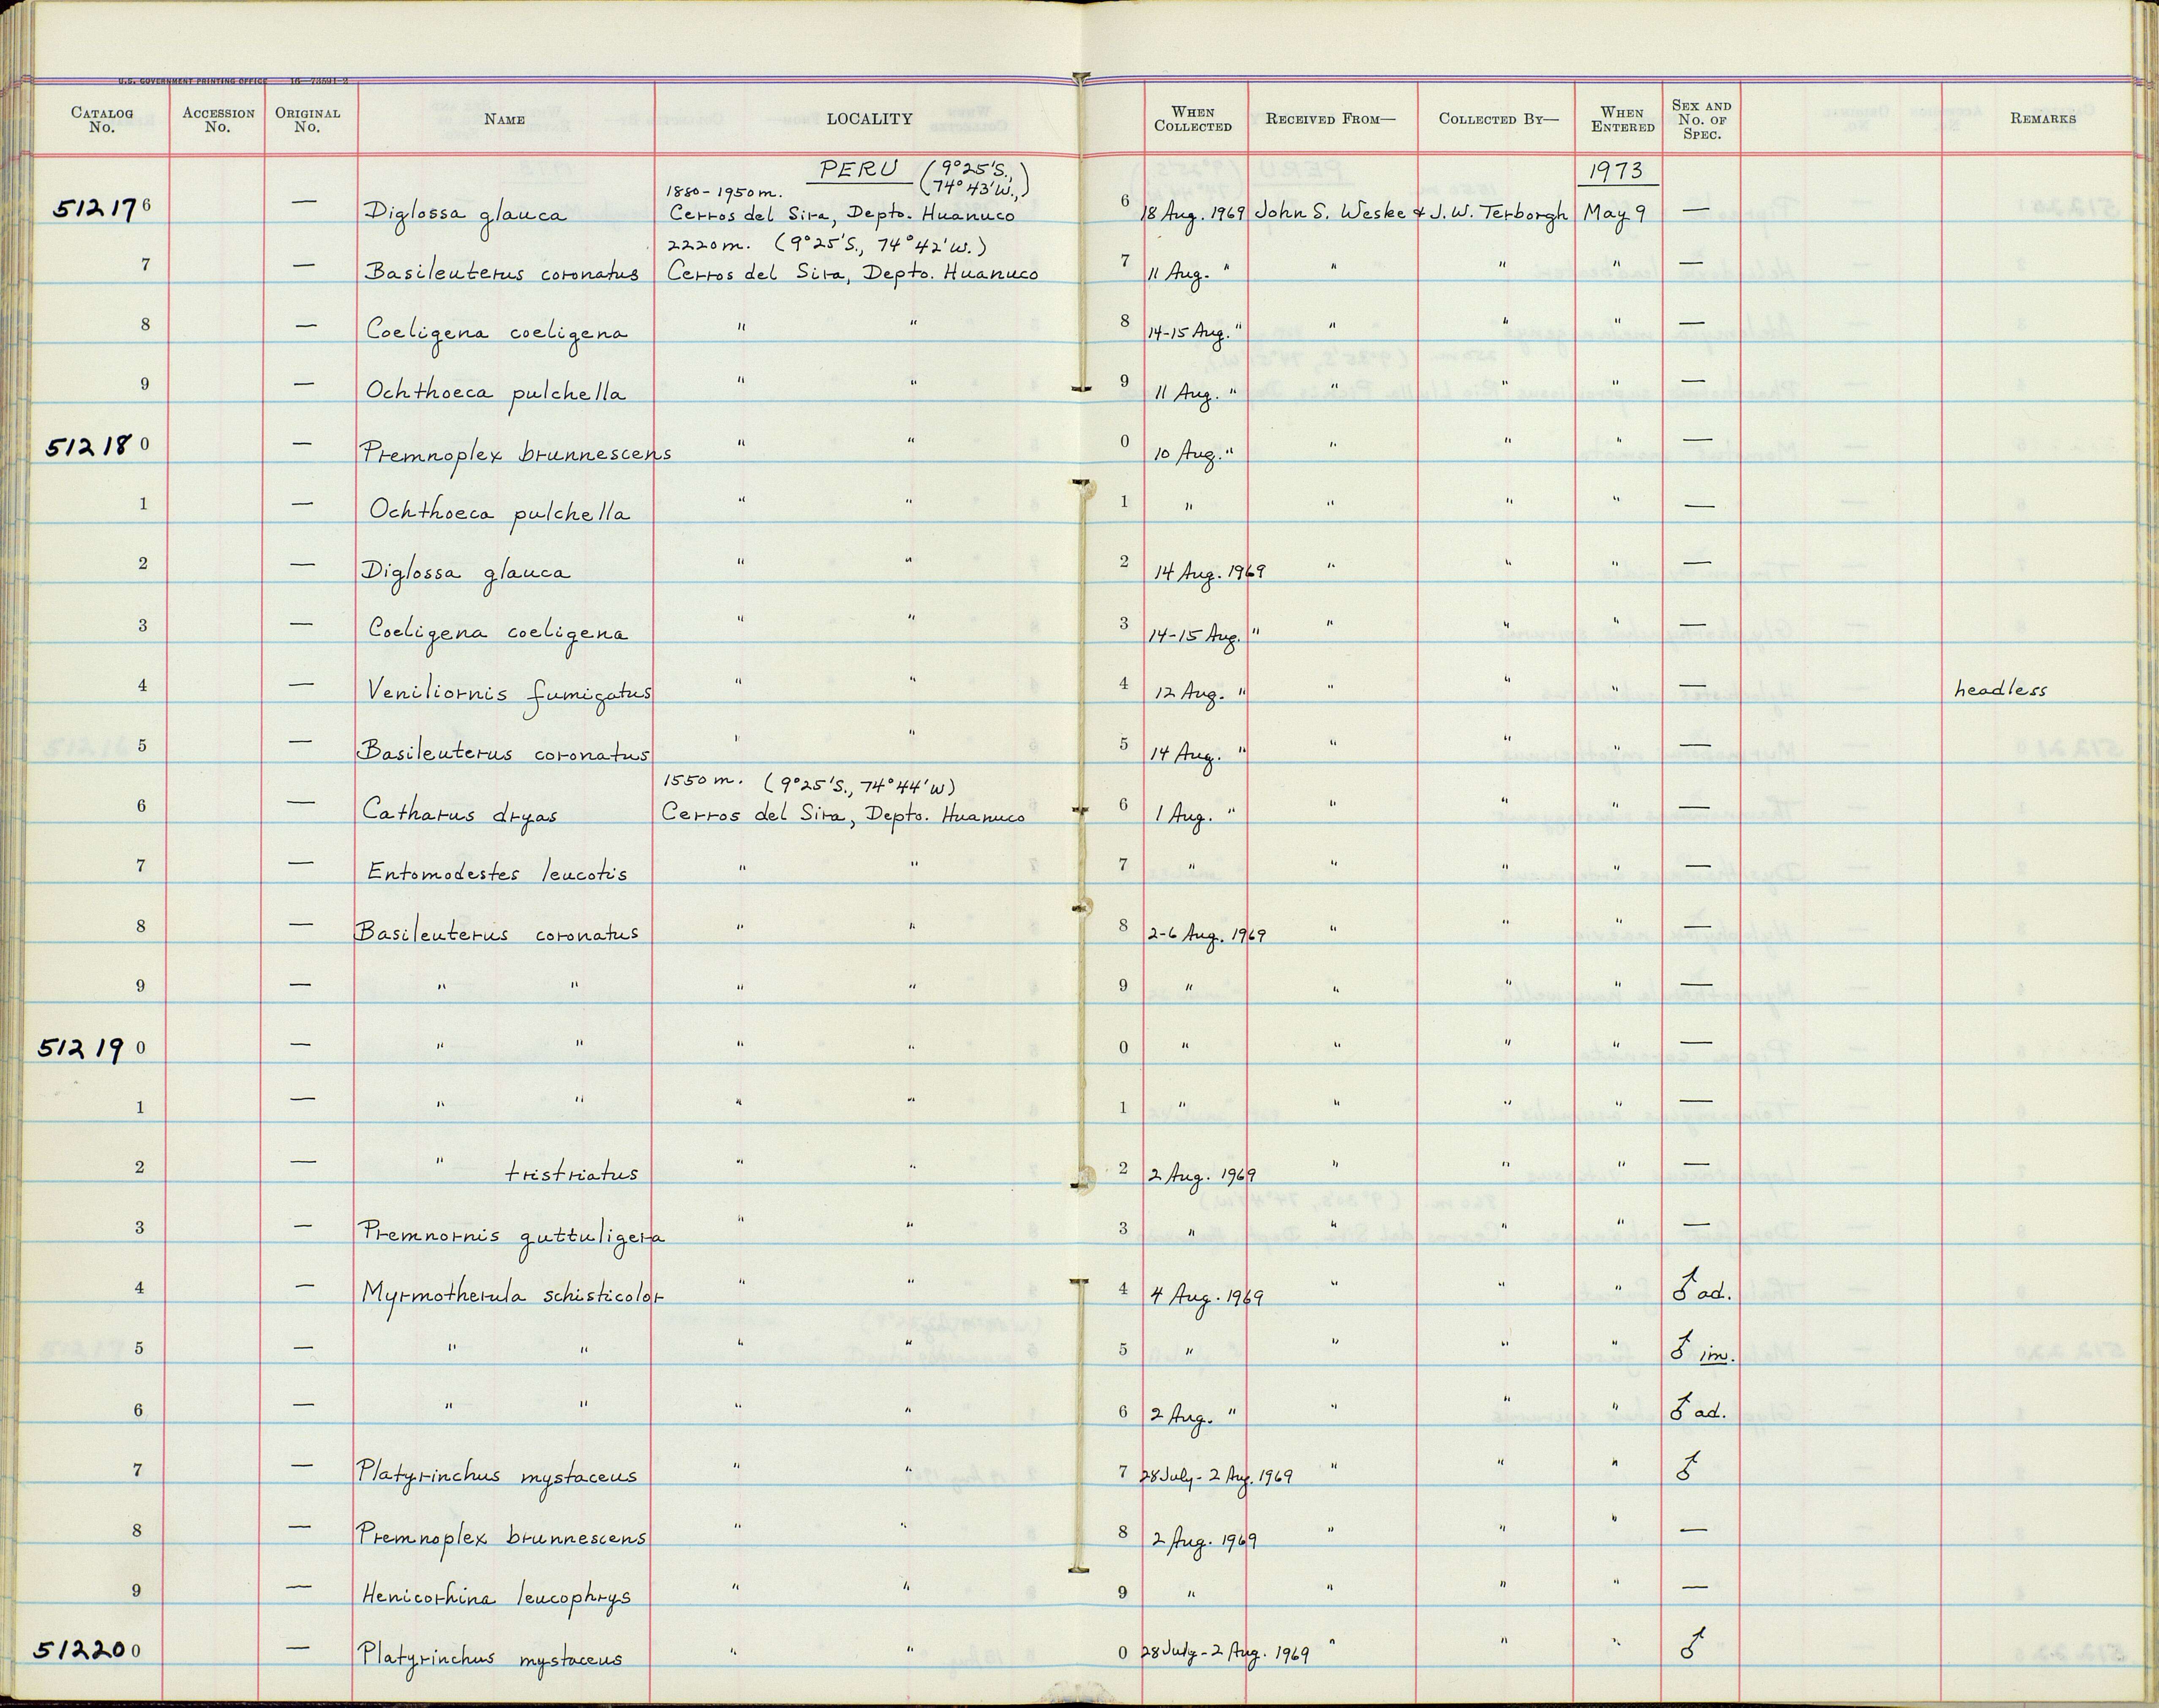 U.S. GOVERNMENT PRINTING OFFICE 16—73591-2
CATALOG No. ACCESSION No. ORIGINAL No. NAME LOCALITY WHEN COLLECTED RECEIVED FROM— COLLECTED BY— WHEN ENTERED SEX AND No. OF SPEC. REMARKS
PERU (9°25'S., 74°43'W.,) 1973
1880-1950m.
512176 — Diglossa glauca Cerros del Sira, Depto. Huanuco 6 18 Aug. 1969 John S. Weske & J.W. Terborgh May 9 —
2220m. (9°25'S., 74°42'W.)
7 — Basileuterus coronatus Cerros del Sira, Depto. Huanuco 7 11 Aug. " " " " —
8 — Coeligena coeligena " " 8 14-15 Aug. " " " " —
9 — Ochthoeca pulchella " " 9 11 Aug. " " " " —
512180 — Premnoplex brunnescens " " 0 10 Aug. " " " " —
1 — Ochthoeca pulchella " " 1 " " " " —
2 — Diglossa glauca " " 2 14 Aug. 1969 " " " —
3 — Coeligena coeligena " " 3 14-15 Aug. " " " " —
4 — Veniliornis fumigatus " " 4 12 Aug. " " " " — headless
5 — Basileuterus coronatus " " 5 14 Aug. " " " " —
1550m. (9°25'S., 74°44'W)
6 — Catharus dryas Cerros del Sira, Depto. Huanuco 6 1 Aug. " " " " —
7 — Entomodestes leucotis " " 7 " " " " —
8 — Basileuterus coronatus " " 8 2-6 Aug. 1969 " " " —
9 — " " " " 9 " " " " —
512190 — " " " " 0 " " " " —
1 — " " " " 1 " " " " —
2 — " tristriatus " " 2 2 Aug. 1969 " " " —
3 — Premnornis guttuligera " " 3 " " " " —
4 — Myrmotherula schisticolor " " 4 4 Aug. 1969 " " " ♂ ad.
5 — " " " " 5 " " " " ♂ im.
6 — " " " " 6 2 Aug. " " " " ♂ ad.
7 — Platyrinchus mystaceus " " 7 28 July - 2 Aug. 1969 " " " ♂
8 — Premnoplex brunnescens " " 8 2 Aug. 1969 " " " —
9 — Henicorhina leucophrys " " 9 " " " " —
512200 — Platyrinchus mystaceus " " 0 28 July - 2 Aug. 1969 " " " ♂